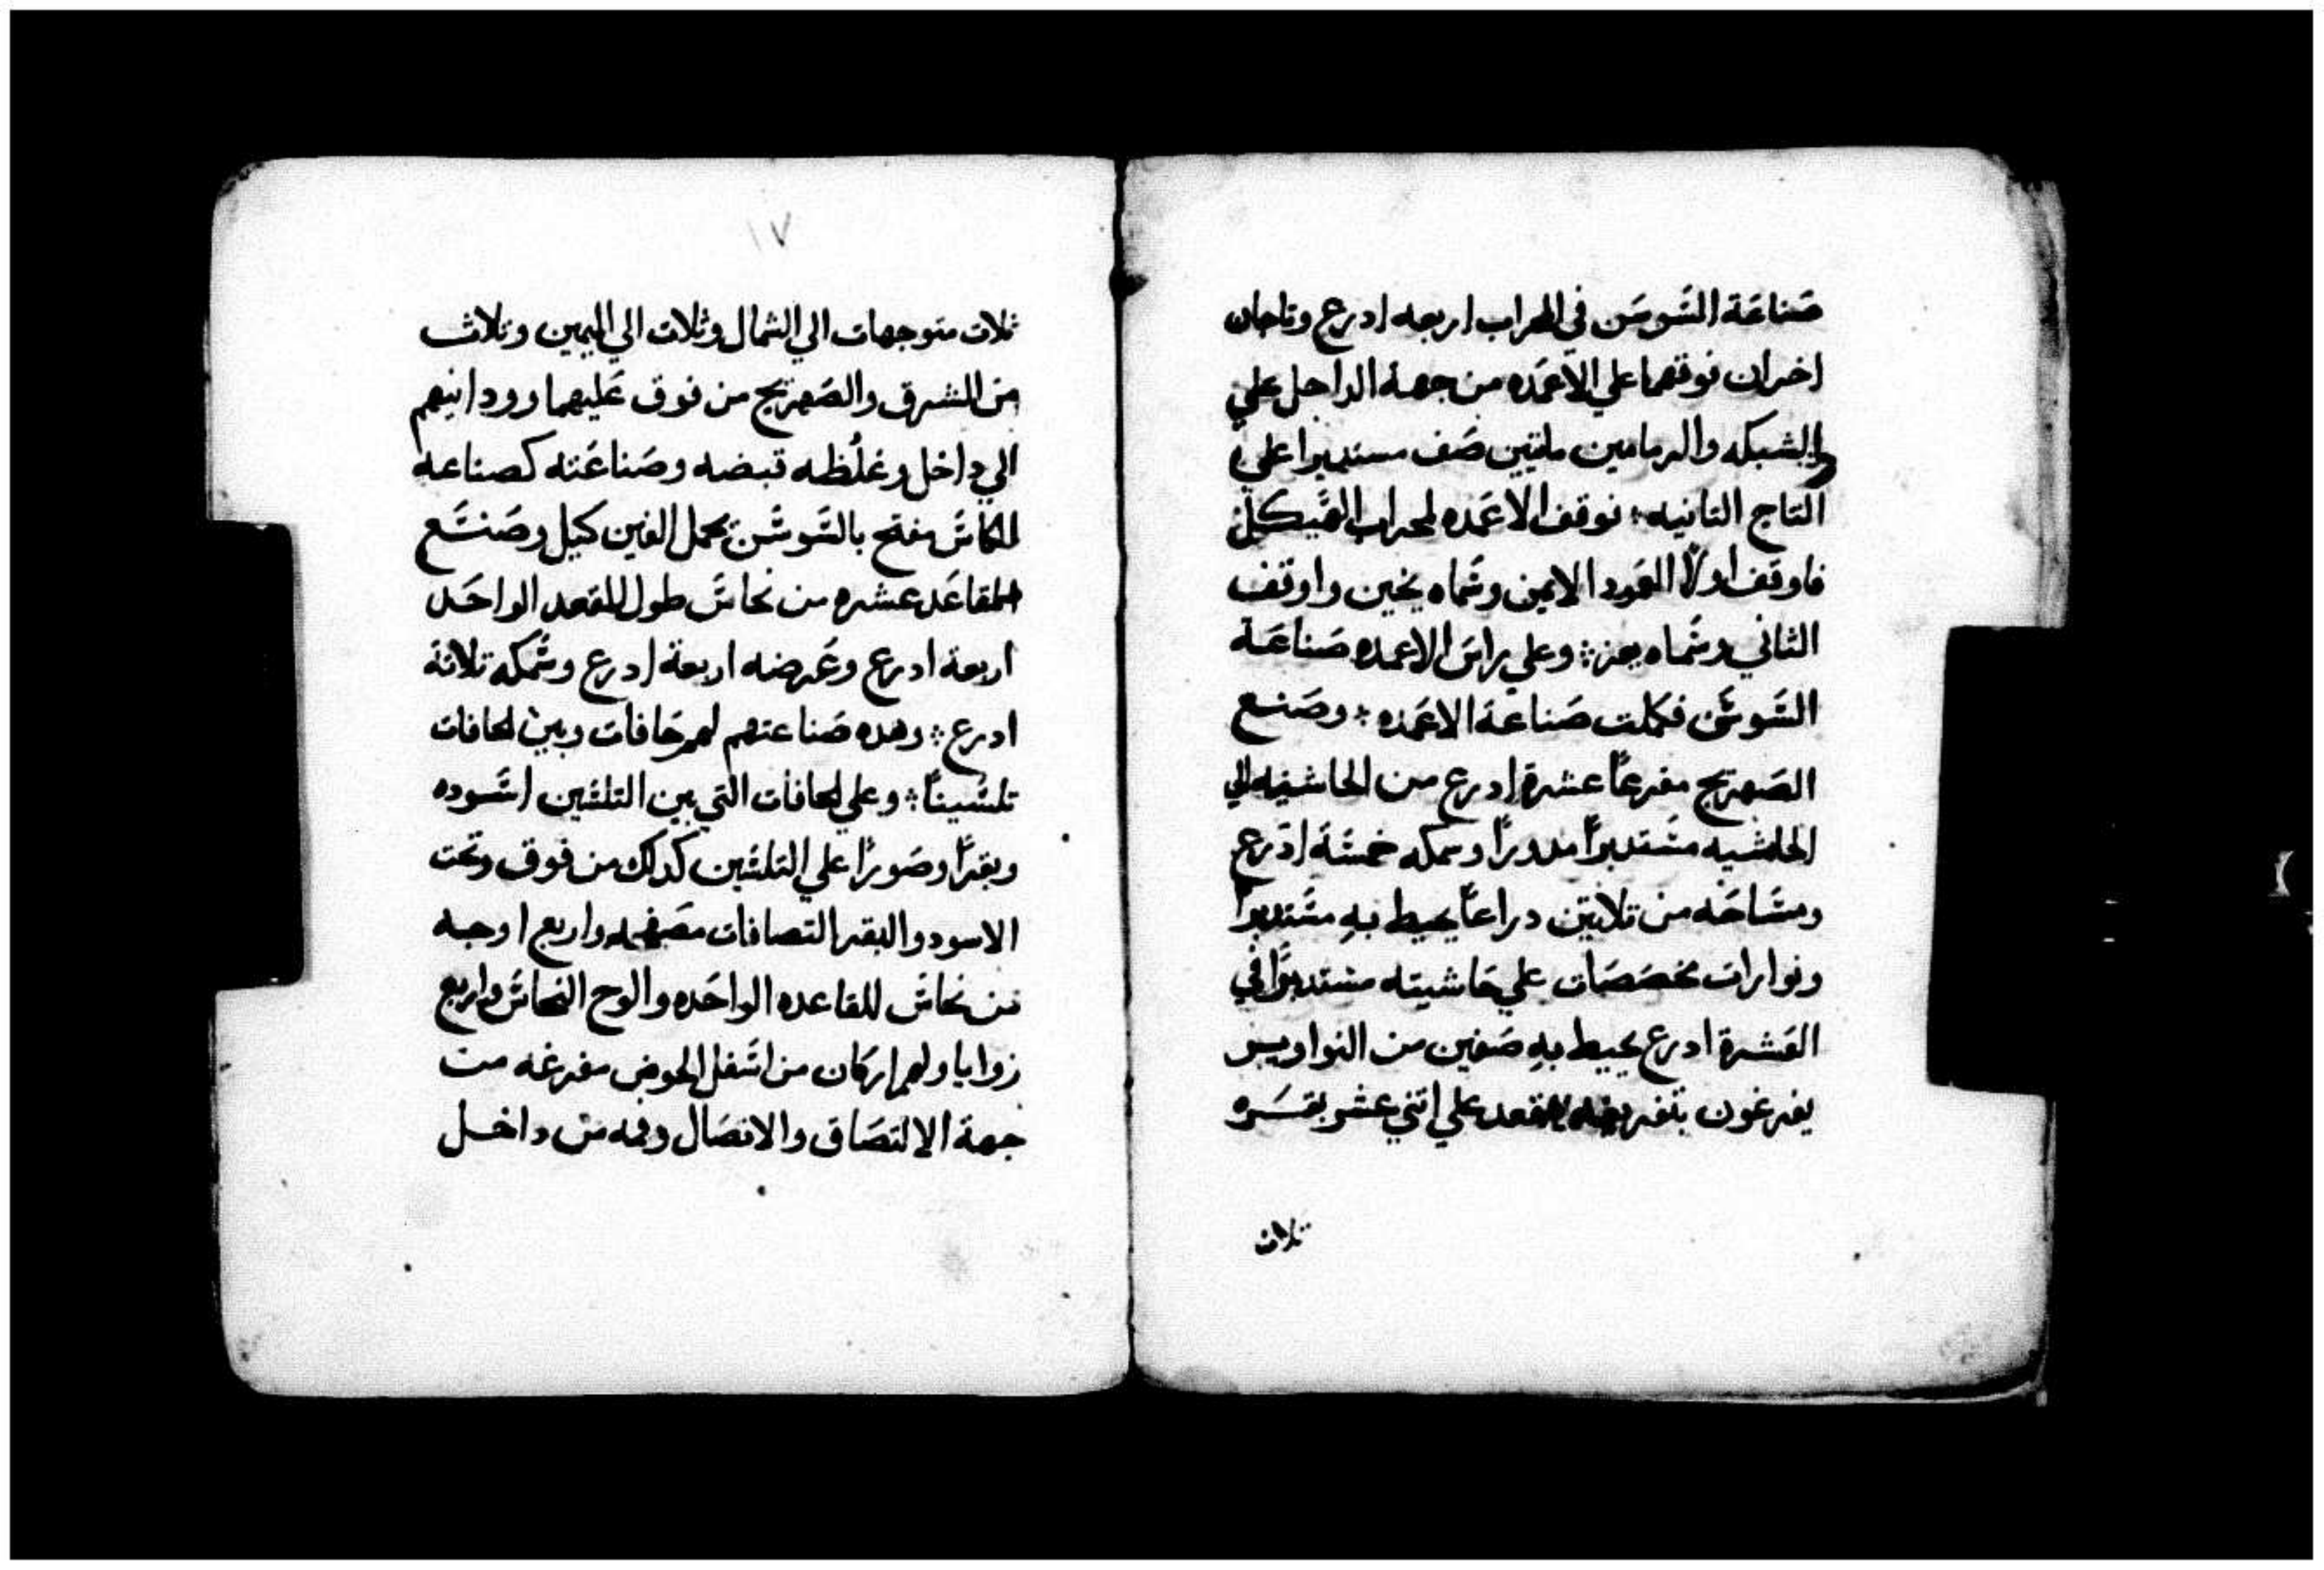 صناعة السوسن في المحراب اربعه ادرع وتاجان
اخران فوقهما علي الاعمده من جهة الداخل علي
الشبكه والرمامين مايتين صف مستديرا علي
التاج الثانيه ؛ فوقف الاعمده لمحراب الهيكل
فاوقف اولاً العمود الايمن وسماه يخين واوقف
الثاني وسماه بعز ؛ وعلي راس الاعمده صناعة
السوسن فكملت صناعة الاعمده ؛ وصنع
الصهريج مفرعاً عشرة ادرع من الحاشيه الي
الحاشيه مستديراً مدوراً وسمكه خمسة ادرع
ومساحه من تلاتين دراعاً يحيط به مستديراً
ونوارات مخصصات علي حاشيته مستديراً في
العشرة ادرع يحيط به صفين من النواويس
يفرغون بتفريغه مقعد علي اتني عشر بقره
تلات
١٧
ثلات متوجهات الي الشمال وثلات الي اليمين وتلات
من المشرق والصهريج من فوق عليهما وردانيهم
الي داخل وغلظه قبضه وصناعته كصناعه
الكاس مفتح بالسوسن يحمل الفين كيل وصنع
المقاعد عشره من نحاس طول المقعد الواحد
اربعة ادرع وعرضه اربعة ادرع وسمكه تلاتة
ادرع ؛ وهده صناعتهم لهم حافات وبين الحافات
تلسيناً ؛ وعلي الحافات التي بين التلسين اسوده
وبقراً وصوراً علي التلسين كدلك من فوق وتحت
الاسود والبقر التصافات مصفحه واربع اوجه
من نحاس للقاعده الواحده والوح النحاس واربع
زوايا ولهم اركان من اسفل الحوض مفرغه من
جهة الالتصاق والاتصال وفمه من داخل